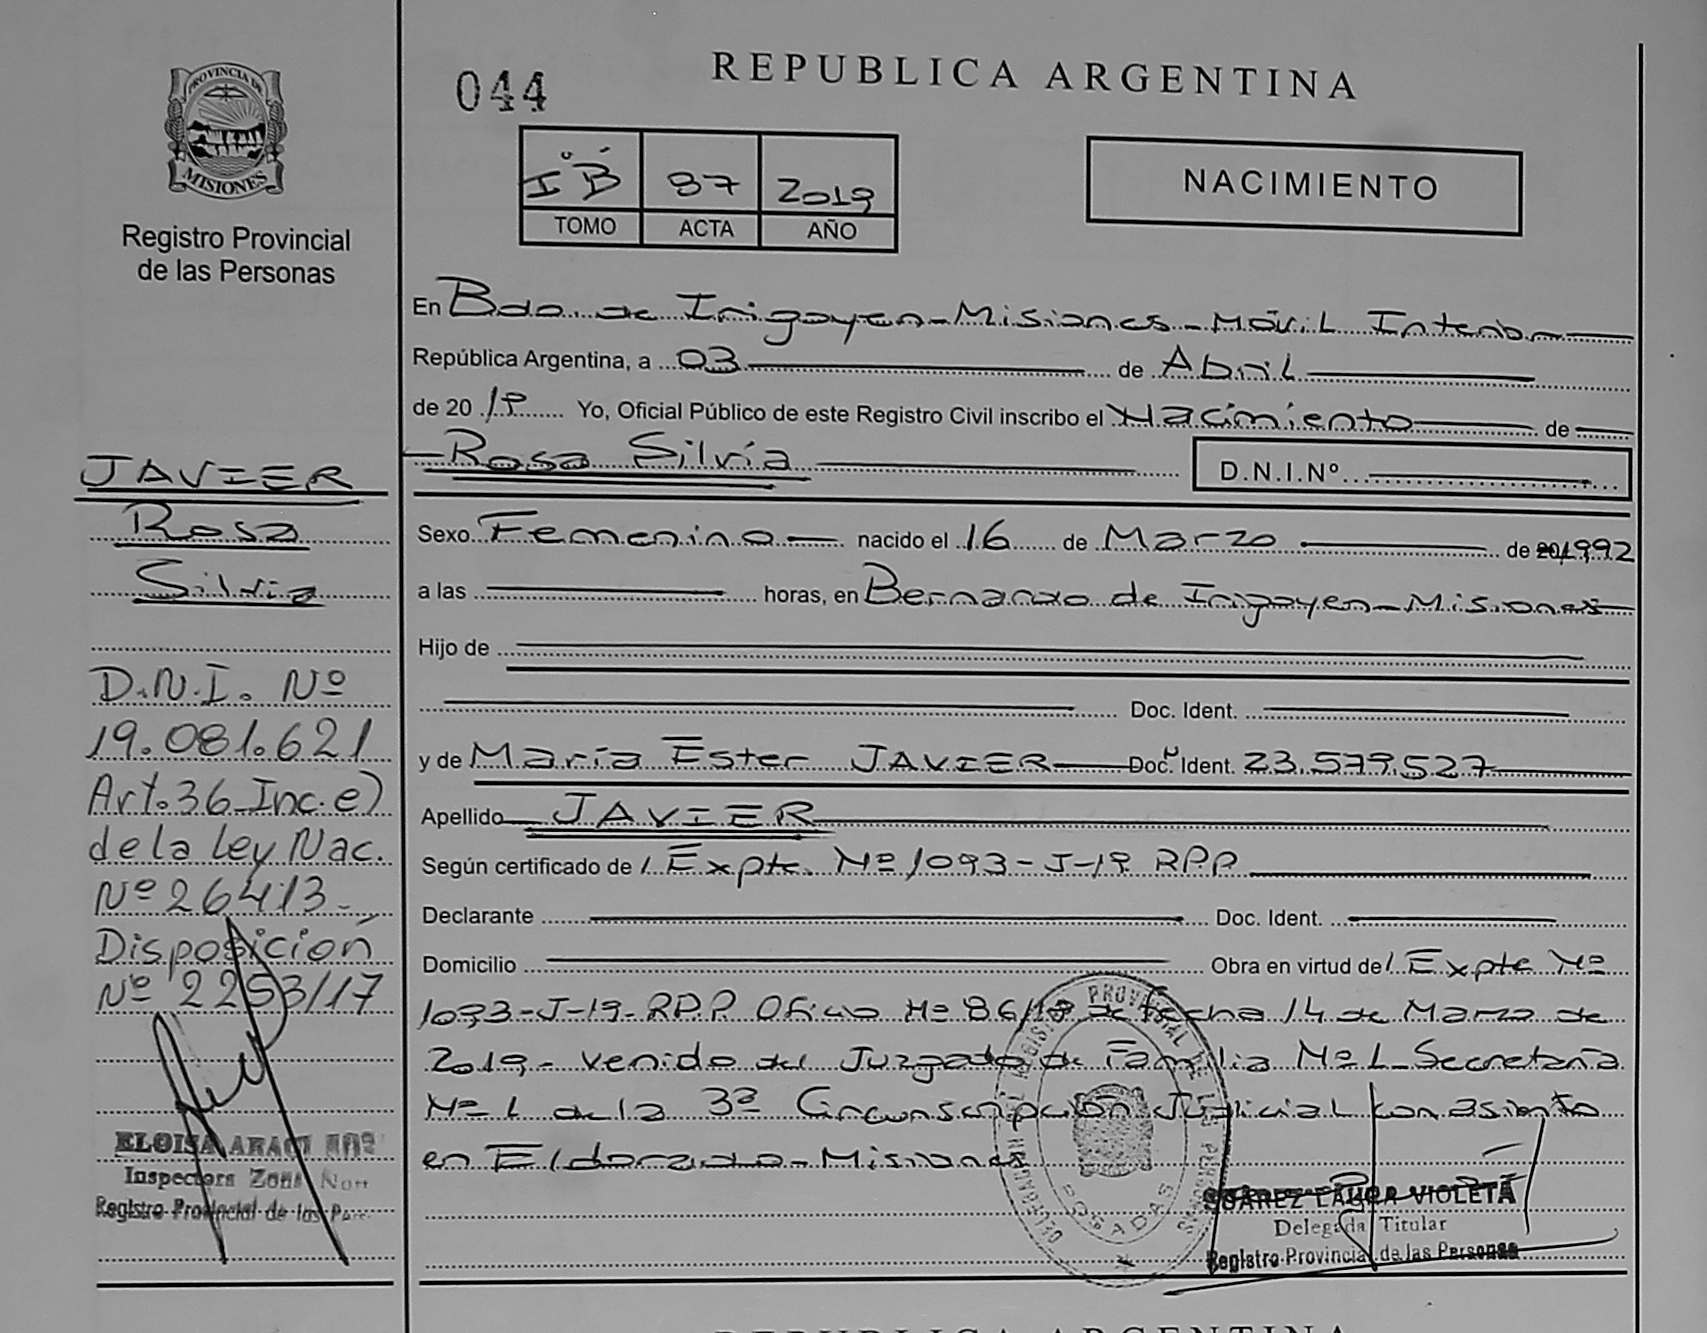 PROVINCIA DE
MISIONES
Registro Provincial
de las Personas
JAVIER
Rosa
Silvia
D.N.I. Nº
19.081.621
Art. 36 Inc. e)
de la Ley Nac.
Nº 26413.-
Disposición
Nº 2253/17
ELOISA
Inspectora Zona Nor
Registro Provincial de las Per
044
REPUBLICA ARGENTINA
I "B" 87 2019
TOMO ACTA AÑO
NACIMIENTO
En Bdo. de Irigoyen - Misiones - Móvil Interior
República Argentina, a 03 de Abril
de 2019 Yo, Oficial Público de este Registro Civil inscribo el Nacimiento de
Rosa Silvia D.N.I.Nº
Sexo Femenino nacido el 16 de Marzo de 1992
a las horas, en Bernardo de Irigoyen - Misiones
Hijo de
Doc. Ident.
y de María Ester JAVIER Doc. Ident. 23.579.527
Apellido JAVIER
Según certificado de / Expte. Nº 1093-J-19 RPP
Declarante Doc. Ident.
Domicilio Obra en virtud de / Expte Nº
1093-J-19-RPP Oficio Nº 86/19 de fecha 14 de Marzo de
2019 - venido del Juzgado de Familia Nº 1 - Secretaría
Nº 1 de la 3ª Circunscripción Judicial con asiento
en Eldorado - Misiones
POSADAS
SUAREZ LAURA VIOLETA
Delegada Titular
Registro Provincial de las Personas
REPUBLICA ARGENTINA